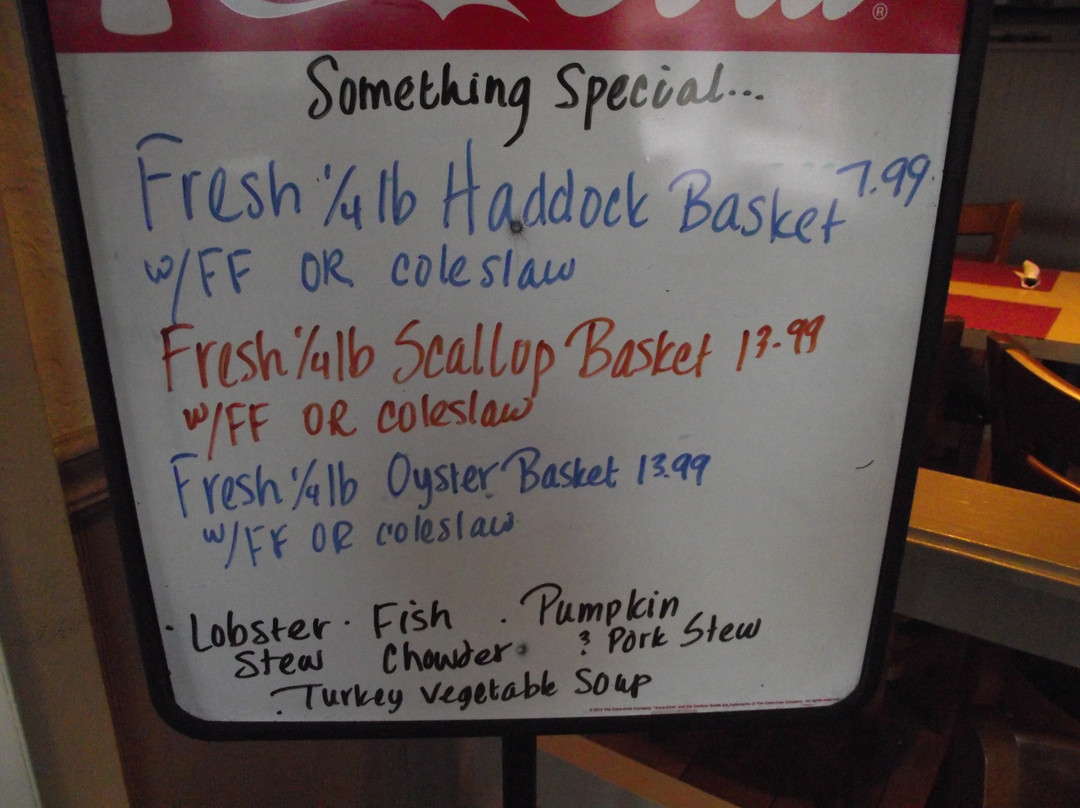 ®
Something Special...
Fresh 1/4 lb Haddock Basket 7.99
w/FF OR coleslaw
Fresh 1/4 lb Scallop Basket 13.99
w/FF OR coleslaw
Fresh 1/4 lb Oyster Basket 13.99
w/FF OR coleslaw
· Lobster Stew
· Fish Chowder
· Pumpkin & Pork Stew
· Turkey Vegetable Soup